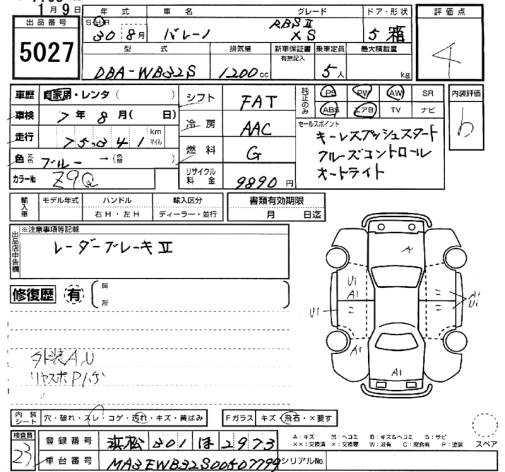 1月9日
年式 車名 グレード ドア・形状 評価点
出品番号
5027
30年8月 バレーノ XS 5 箱 4
型式 排気量 新車保証書 有無記入 乗車定員 最大積載量
DBA-WB32S 1200cc 5人 kg
車歴 自家用・レンタ ( ) シフト FAT 純正のみ PS PW AW SR 内装評価
ABS エアB TV ナビ b
車検 7年8月( 日) 冷房 AAC セールスポイント
走行 75,841 km マイル キーレスプッシュスタート
色 ブルー → 燃料 G クルーズコントロール
カラーNo. Z9Q リサイクル料金 9890円 オートライト
輸入車 モデル年式 ハンドル 輸入区分 書類有効期限
右H・左H ディーラー・並行 月 日迄
出品店申告欄 ※注意事項等記載
レーダーブレーキⅡ
修復歴 有 箇所
A1
U1 A1 A1
U1 U1
A1
外装A,U
リヤスポPハゲ
内装シート 穴・破れ・スレ・コゲ・汚れ・キズ・黄ばみ Fガラス キズ・飛石・×要す
検査員 23 登録番号 浜松 301 ほ 2973
車台番号 MA3EWB32S00507799 シリアルNo. スペア